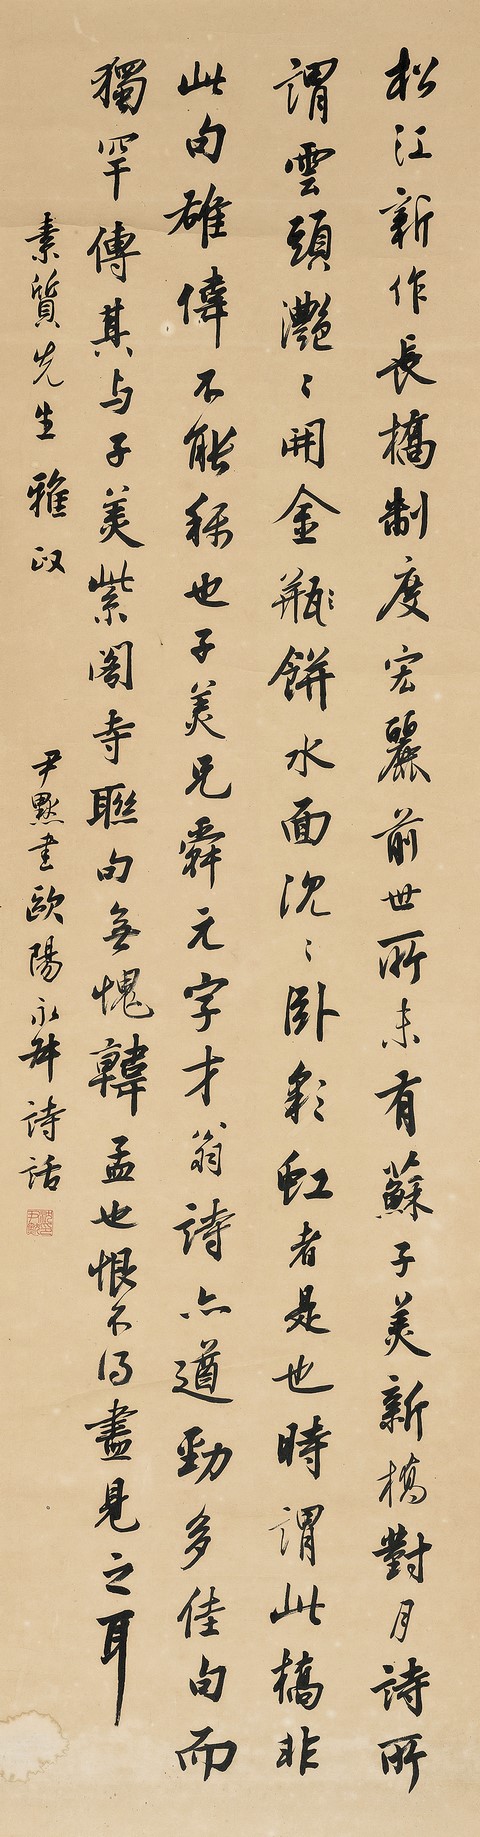 松江新作長橋制度宏麗前世所未有蘇子美新橋對月詩所
謂雲頭灔〻開金瓶〻餅水面沈〻卧彩虹者是也時謂此橋非
此句雄偉不能称也子美兄舜元字才翁詩亦遒勁多佳句而
獨罕傳其与子美紫閣寺聯句無愧韓孟也恨不得盡見之耳
素質先生雅政
尹默書歐陽永叔詩話